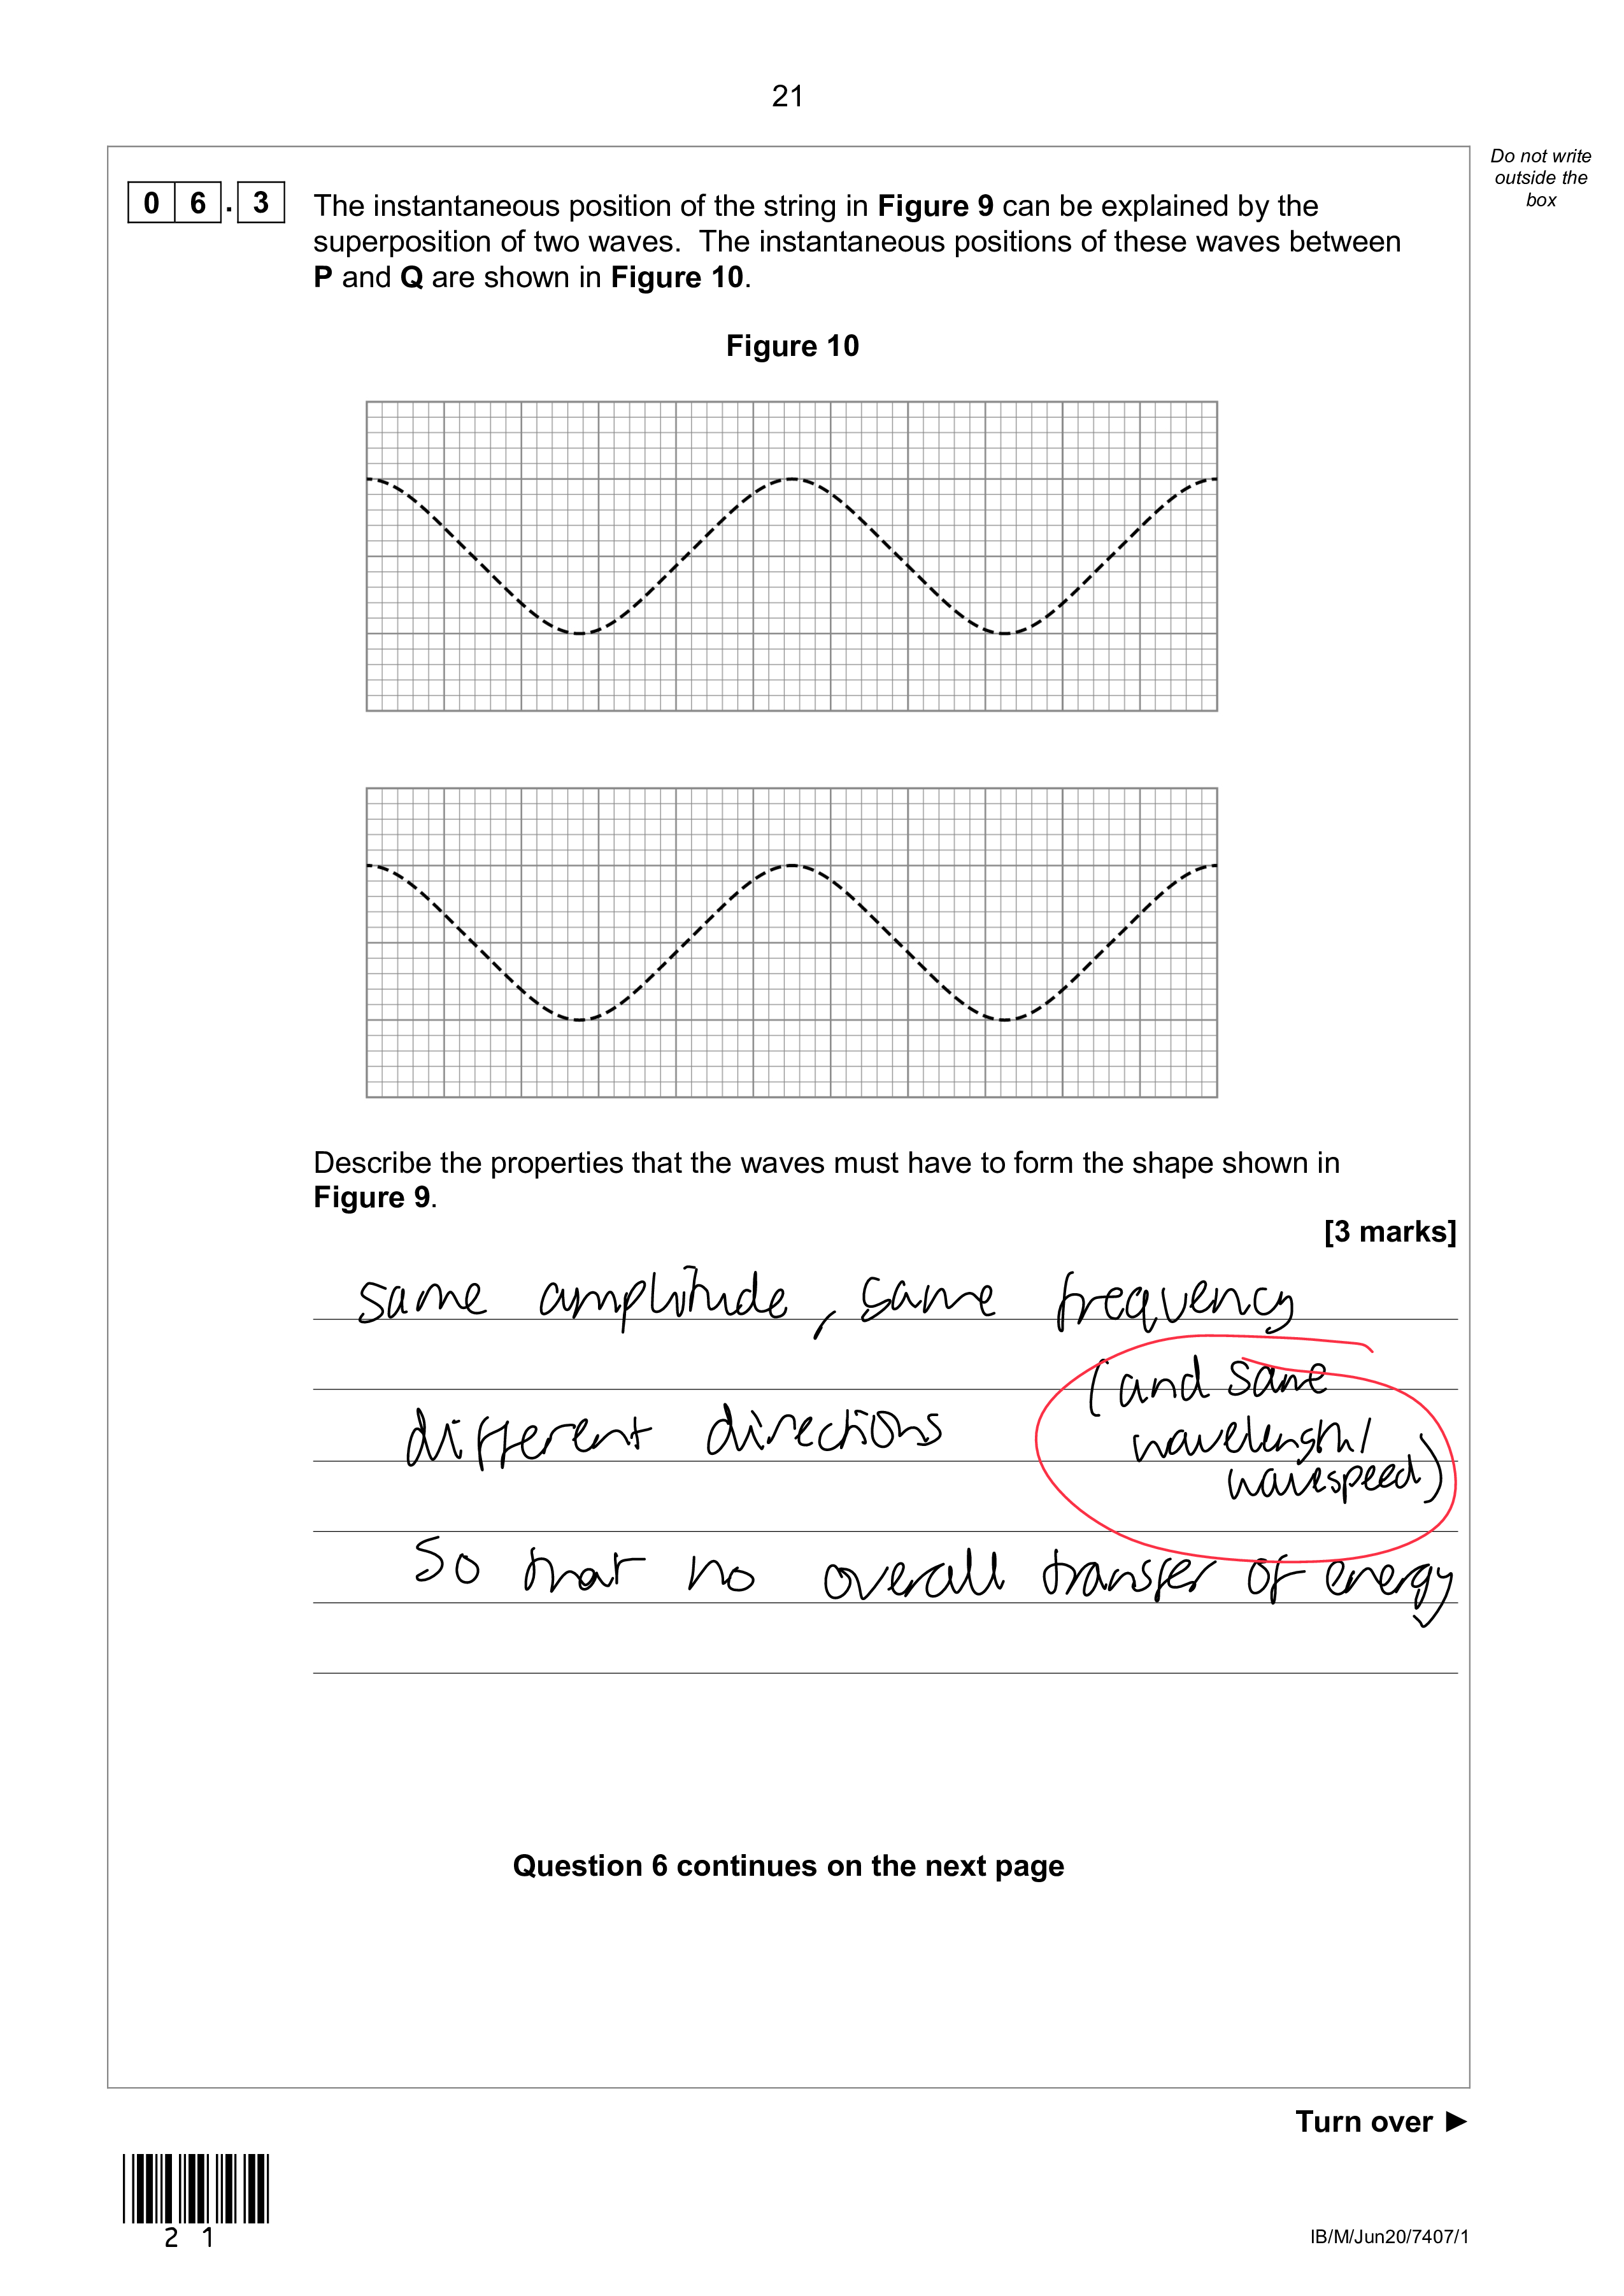 21
Do not write
outside the
box
0 6 . 3
The instantaneous position of the string in Figure 9 can be explained by the
superposition of two waves. The instantaneous positions of these waves between
P and Q are shown in Figure 10.
Figure 10
Describe the properties that the waves must have to form the shape shown in
Figure 9.
[3 marks]
same amplitude, same frequency
(and same
different directions
wavelength/
wavespeed)
so that no overall transfer of energy
Question 6 continues on the next page
Turn over ►
2 1
IB/M/Jun20/7407/1